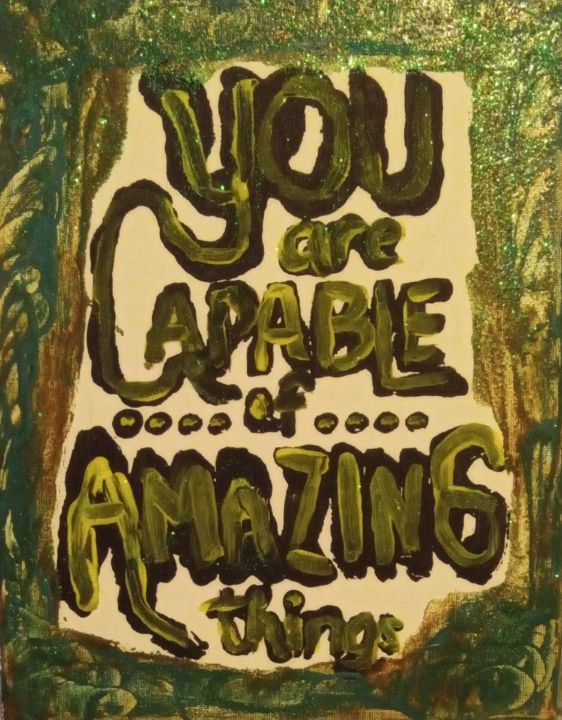 YOU
are
CAPABLE
of
AMAZING
things